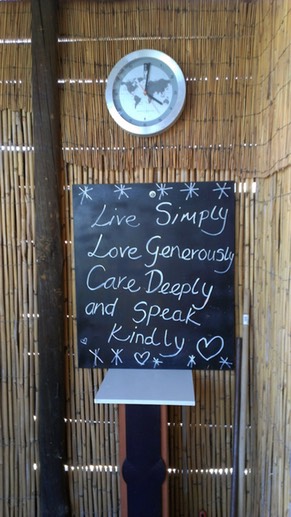 Live Simply
Love Generously
Care Deeply
and Speak
Kindly